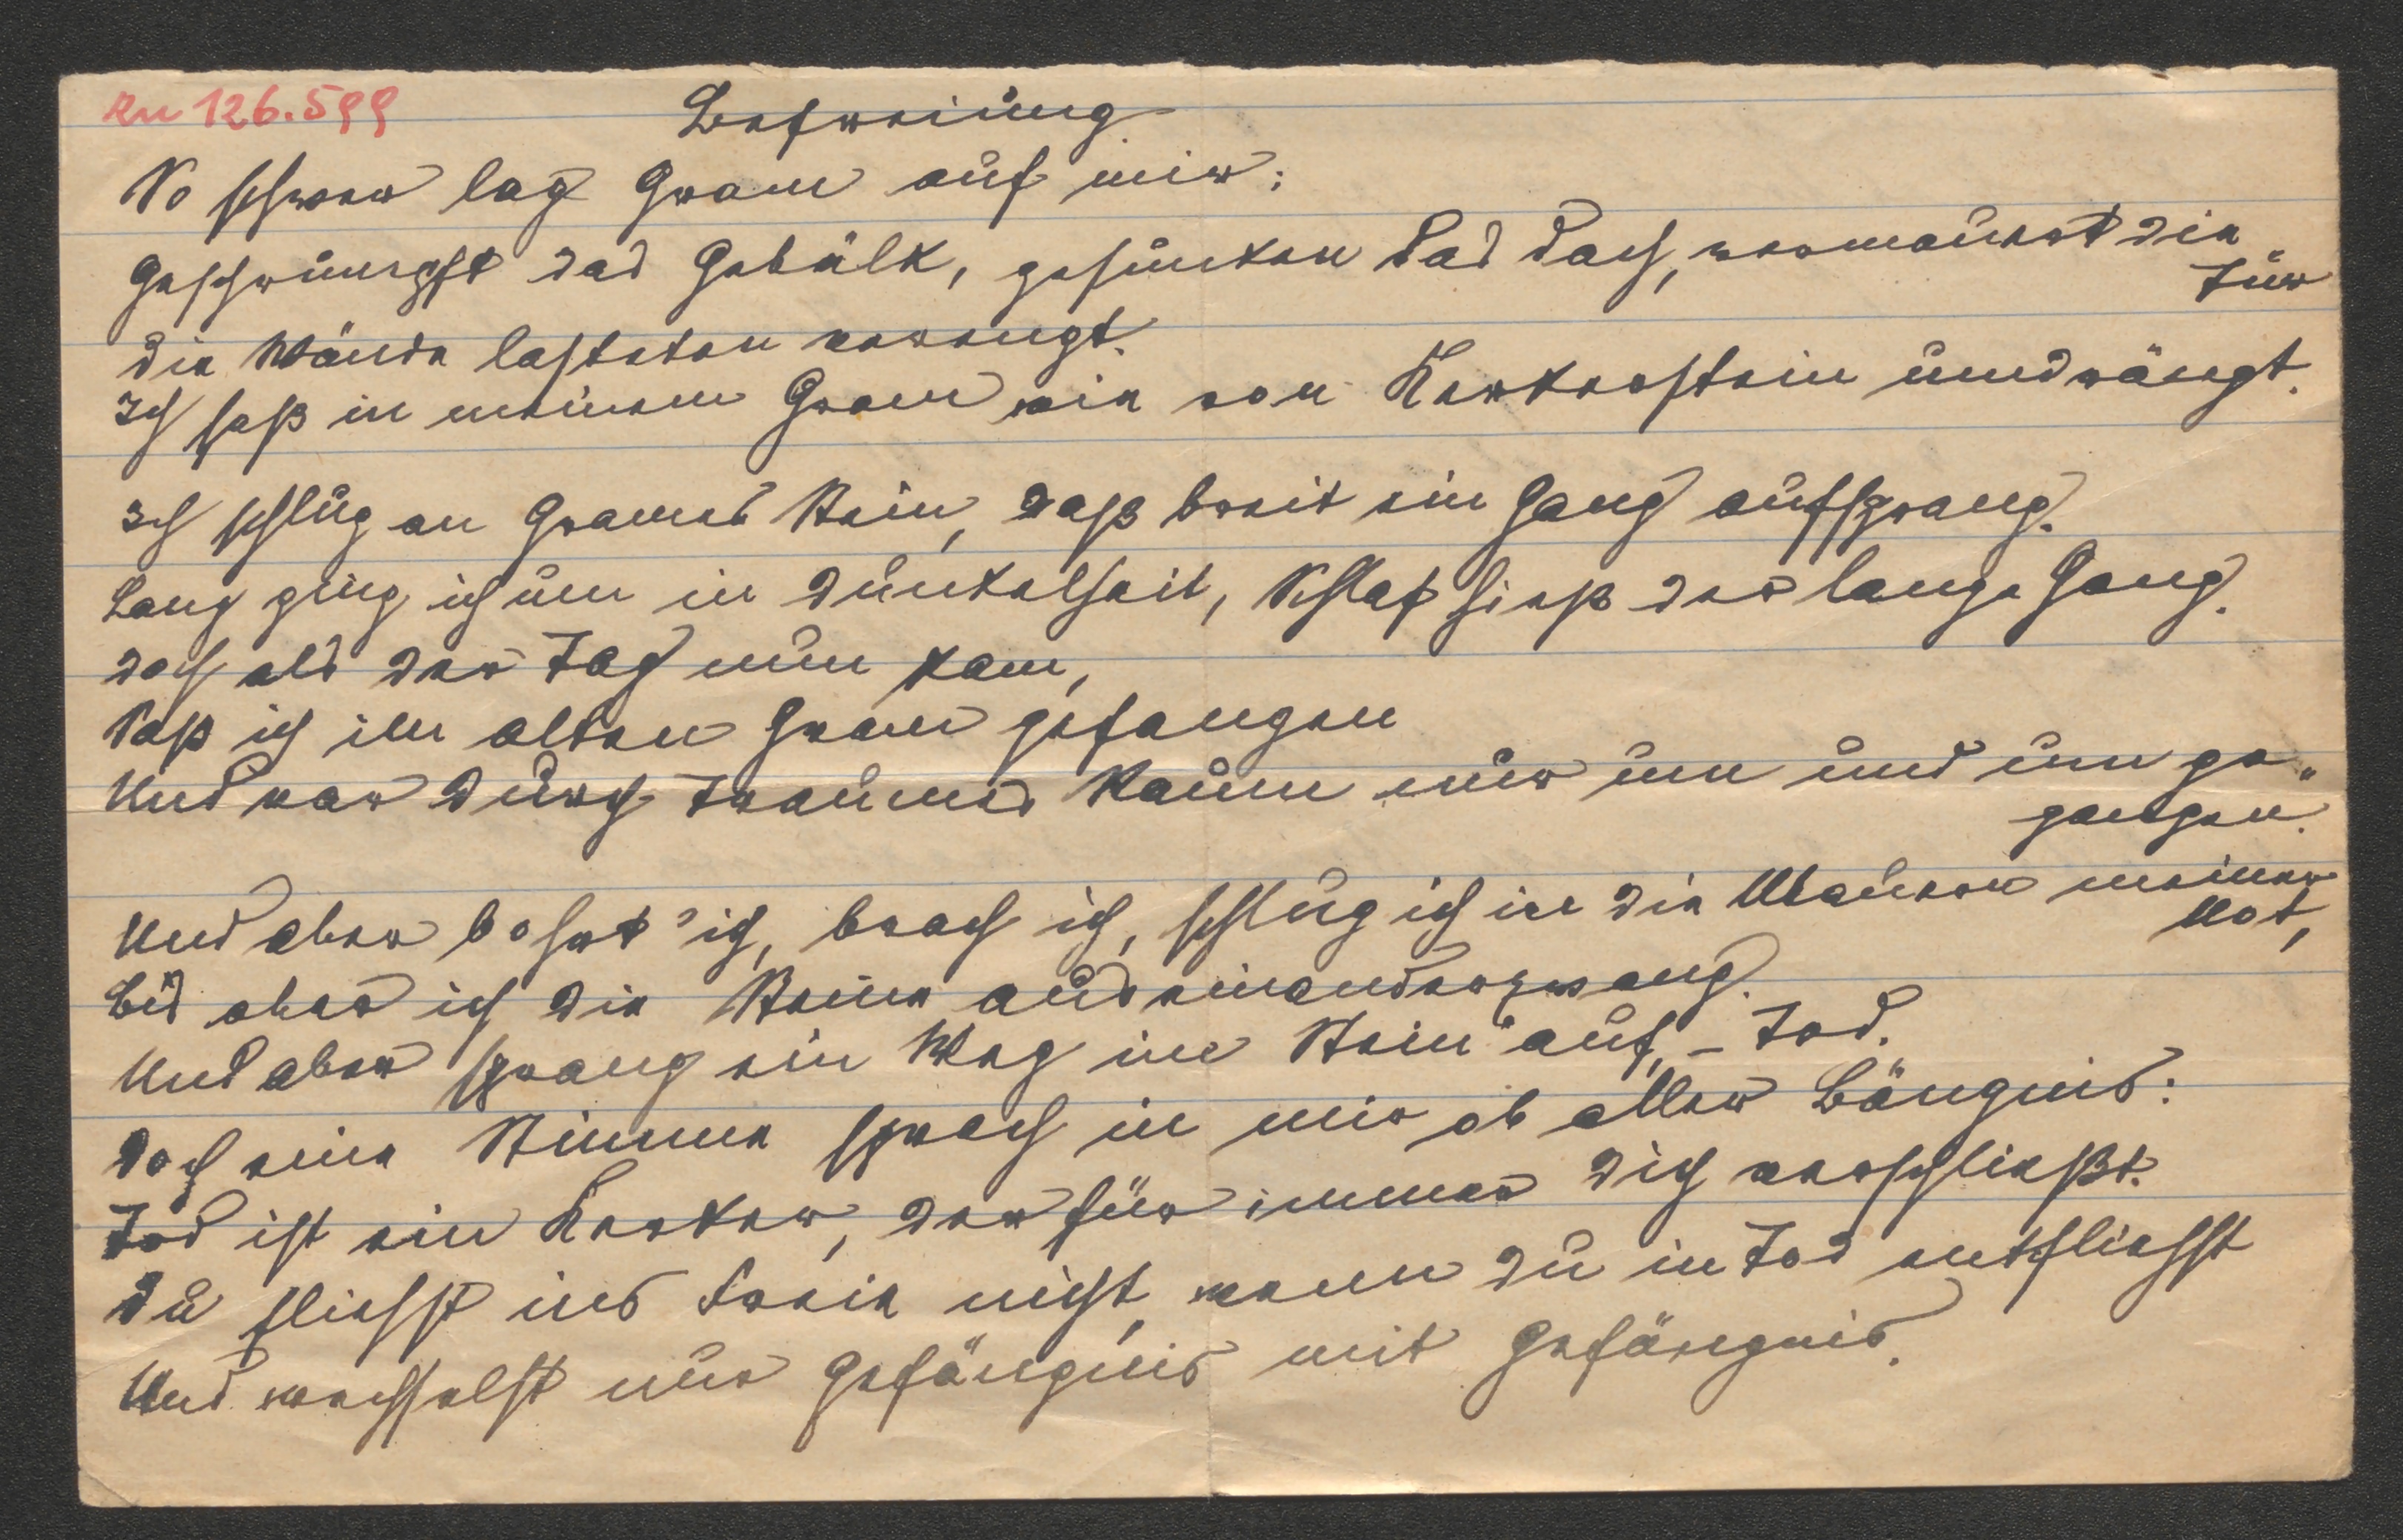 zu 126.599
Befreiung
So schwer lag Gram auf mir:
Geschrumpft das Gebälk, gesunken das Dach, vermauert die
Tür
Die Wände lasteten verengt.
Ich saß in meinem Gram wie von Kerkerstein umdrängt.
Ich schlug an Grames Stein, daß breit ein Gang aufsprang.
Lang ging ich um in Dunkelheit, Schlaf hieß der lange Gang.
Doch als der Tag nun kam,
Saß ich im alten Gram gefangen
Und war durch Traumes Raum nur um und um ge-
gangen.
Und aber bohrt' ich, brach ich, schlug ich in die Mauern meiner
Not,
Bis aber ich die Steine auseinanderzwang.
Und aber sprang ein Weg im Stein auf, – Tod.
Doch eine Stimme sprach in mir ob aller Bängnis:
Tod ist ein Kerker, der für immer dich verschließt.
Du fliehst ins Freie nicht, wenn du in Tod entfliehst
Und wechselst nur Gefängnis mit Gefängnis.